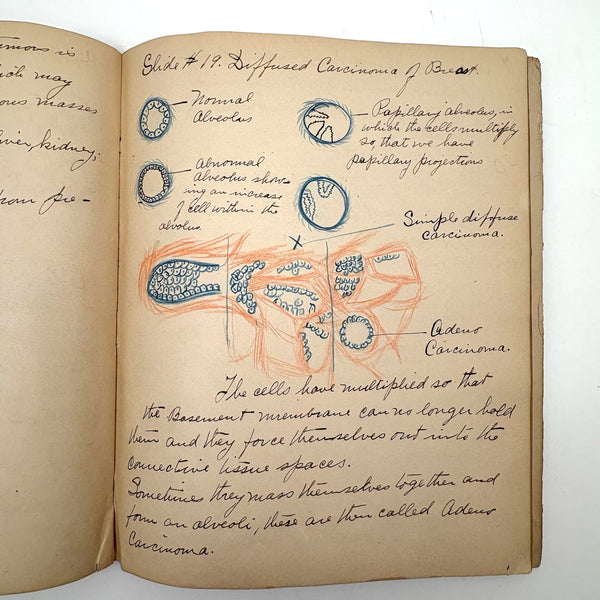 is
may
ous masses
iver, kidney,
from pre-
Slide # 19. Diffused Carcinoma of Breast.
Normal
Alveolus
Abnormal
Alveolus show-
ing an increase
of cell within the
alvolus.
Papillary alveolus, in
which the cells multiply
so, that we have
papillary projections
X
Simple diffuse
carcinoma.
Adeno
Carcinoma.
The cells have multiplied so that
the Basement membrane can no longer hold
them and they force themselves out into the
connective tissue spaces.
Sometimes they mass themselves together and
form an alveoli, these are then called Adeno
Carcinoma.